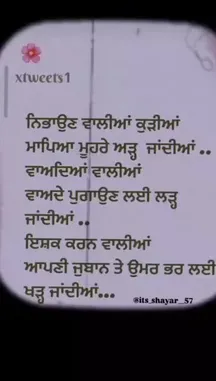 xtweets1
ਨਿਭਾਉਣ ਵਾਲੀਆਂ ਕੁੜੀਆਂ
ਮਾਪਿਆ ਮੂਹਰੇ ਅੜ੍ਹ ਜਾਂਦੀਆਂ ..
ਵਾਅਦਿਆਂ ਵਾਲੀਆਂ
ਵਾਅਦੇ ਪੁਗਾਉਣ ਲਈ ਲੜ੍ਹ
ਜਾਂਦੀਆਂ ..
ਇਸ਼ਕ ਕਰਨ ਵਾਲੀਆਂ
ਆਪਣੀ ਜੁਬਾਨ ਤੇ ਉਮਰ ਭਰ ਲਈ
ਖੜ੍ਹ ਜਾਂਦੀਆਂ...
@its_shayar__57